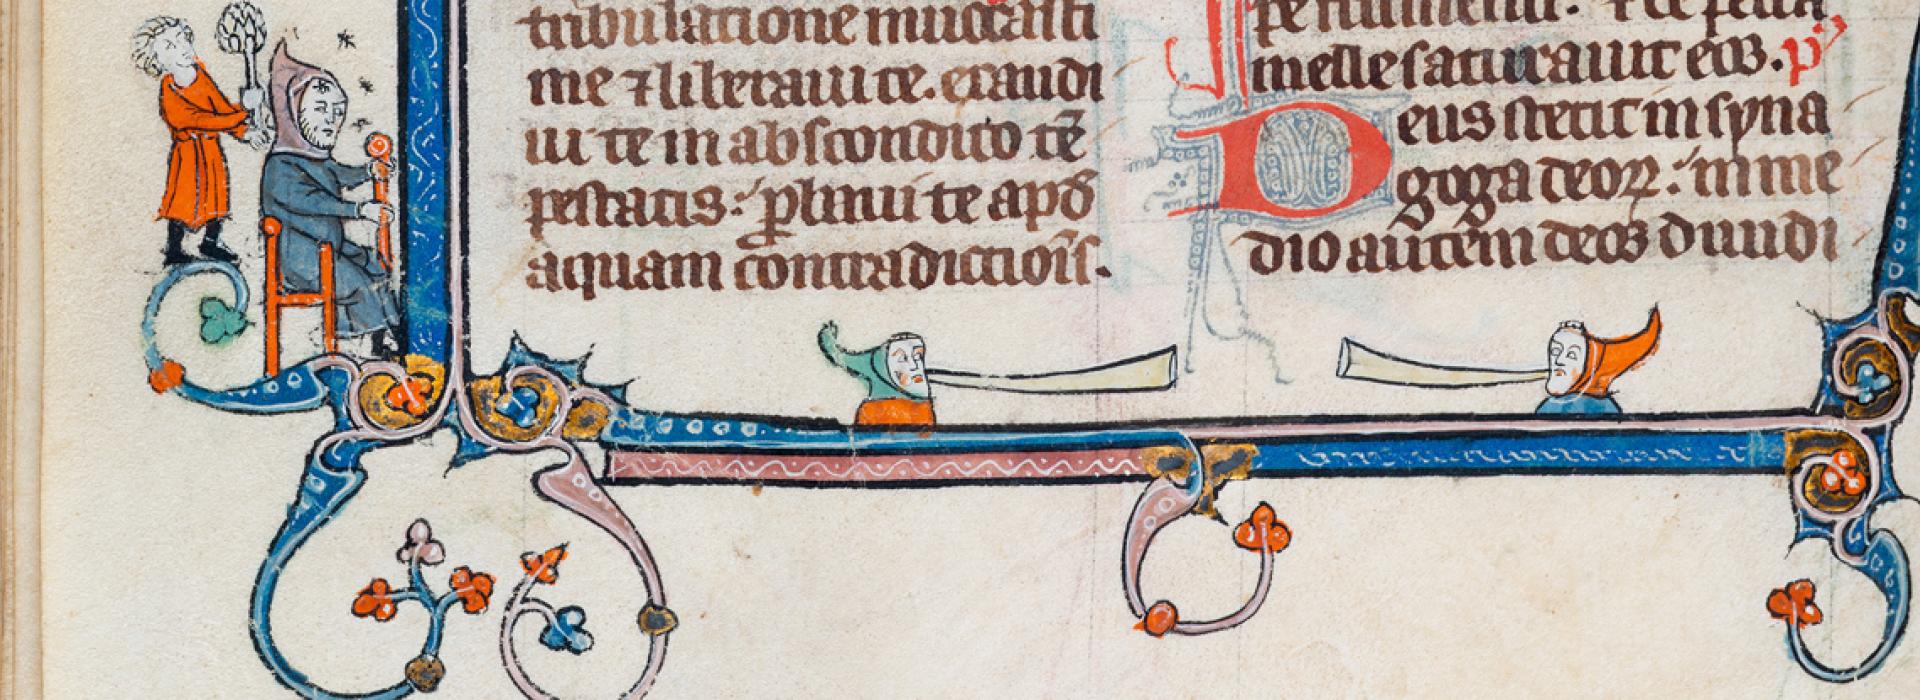 tribulatione inuocasti
me ⁊ liberaui te. exaudi
ui te in abscondito tē
pestatis: ꝓbaui te apđ
aquam contradictiōis.
pe frumenti: ⁊ de petra
melle saturauit eos. p'
Deus stetit in syna
goga deoꝝ: in me
dio autem deos diiudi